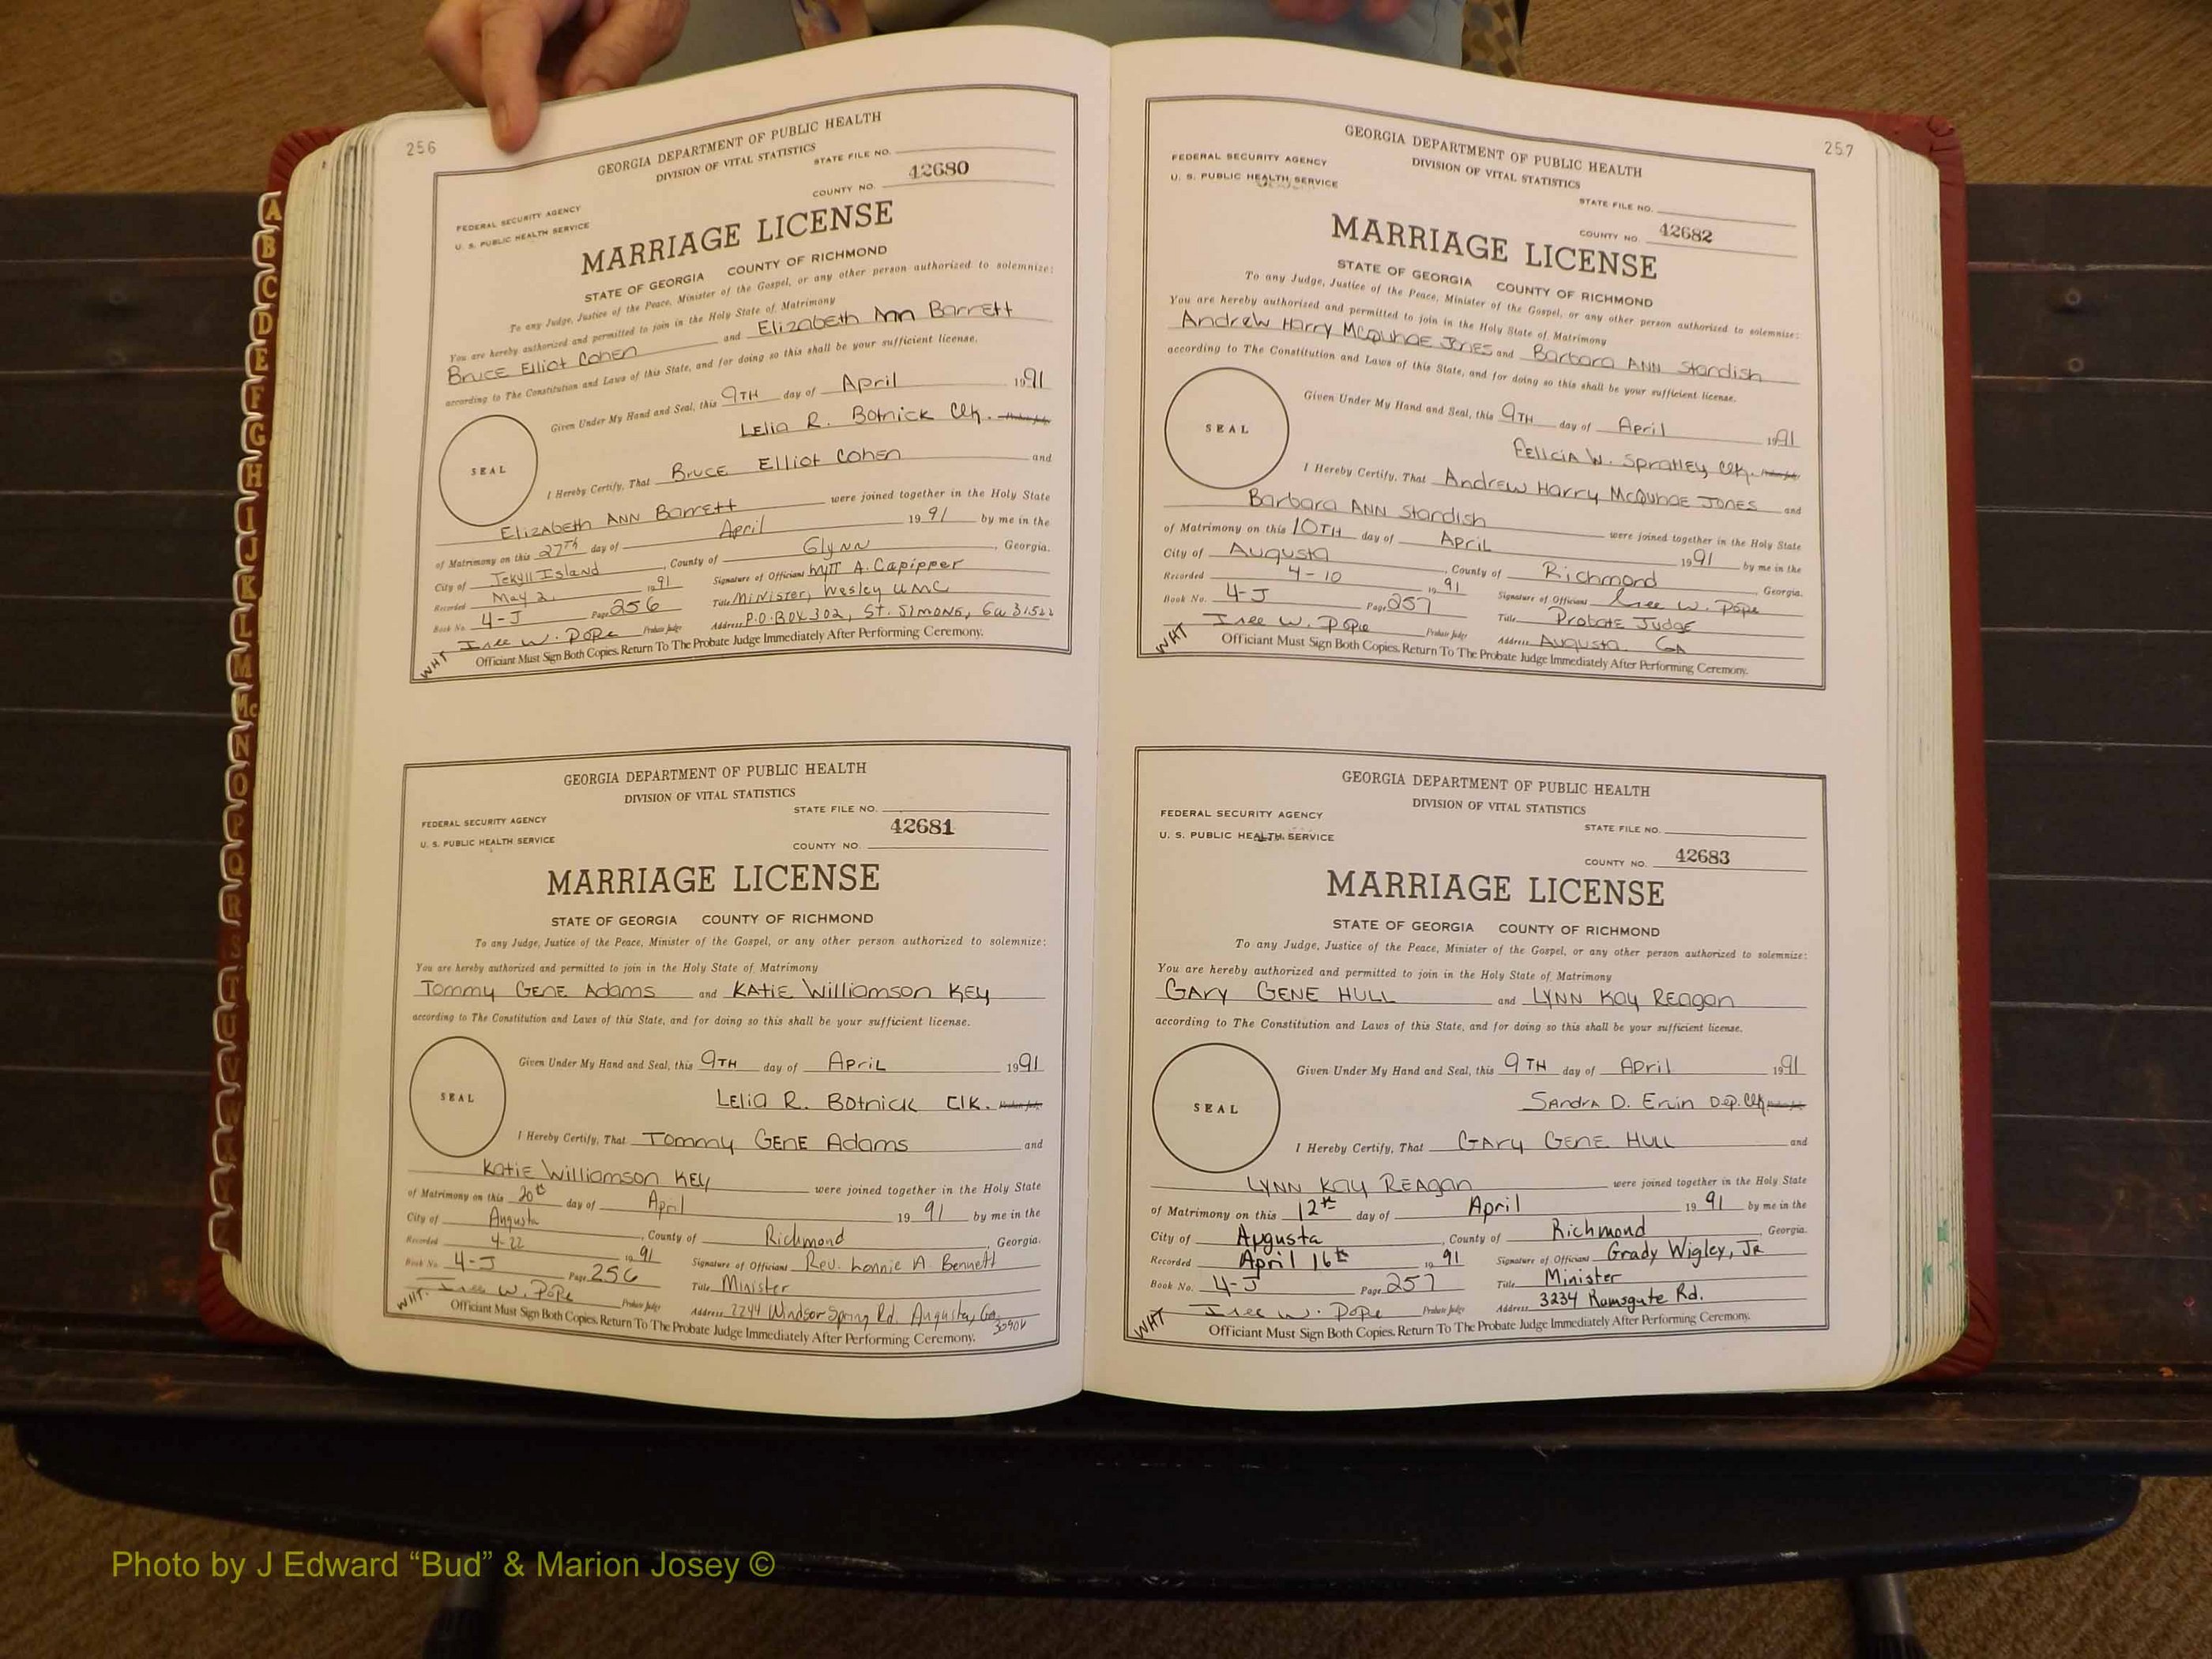 256
GEORGIA DEPARTMENT OF PUBLIC HEALTH
DIVISION OF VITAL STATISTICS
STATE FILE NO.
42680
COUNTY NO.
FEDERAL SECURITY AGENCY
U. S. PUBLIC HEALTH SERVICE
MARRIAGE LICENSE
STATE OF GEORGIA COUNTY OF RICHMOND
To any Judge, Justice of the Peace, Minister of the Gospel, or any other person authorized to solemnize:
You are hereby authorized and permitted to join in the Holy State of Matrimony
Bruce Elliot Cohen and Elizabeth Ann Barrett
according to The Constitution and Laws of this State, and for doing so this shall be your sufficient license.
Given Under My Hand and Seal, this 9TH day of April 1991
Lelia R. Botnick Clk. Probate Judge
SEAL
I Hereby Certify, That Bruce Elliot Cohen and
Elizabeth Ann Barrett were joined together in the Holy State
of Matrimony on this 27th day of April 1991 by me in the
City of Jekyll Island, County of Glynn, Georgia.
Recorded May 2, 1991 Signature of Officiant A. Capipper
Book No. 4-J Page 256 Title Minister, Wesley UMC
W. Pope Probate Judge Address P.O. Box 302, St. Simons, Ga 31522
WHT Officiant Must Sign Both Copies. Return To The Probate Judge Immediately After Performing Ceremony.
GEORGIA DEPARTMENT OF PUBLIC HEALTH
DIVISION OF VITAL STATISTICS
STATE FILE NO.
42681
FEDERAL SECURITY AGENCY
U. S. PUBLIC HEALTH SERVICE
COUNTY NO.
MARRIAGE LICENSE
STATE OF GEORGIA COUNTY OF RICHMOND
To any Judge, Justice of the Peace, Minister of the Gospel, or any other person authorized to solemnize:
You are hereby authorized and permitted to join in the Holy State of Matrimony
Tommy Gene Adams and Katie Williamson Key
according to The Constitution and Laws of this State, and for doing so this shall be your sufficient license.
Given Under My Hand and Seal, this 9TH day of April 1991
Lelia R. Botnick Clk. Probate Judge
SEAL
I Hereby Certify, That Tommy Gene Adams and
Katie Williamson Key were joined together in the Holy State
of Matrimony on this 20th day of April 1991 by me in the
City of Augusta, County of Richmond, Georgia.
Recorded 4-22 1991 Signature of Officiant Rev. Lonnie A Bennett
Book No. 4-J Page 256 Title Minister
W. Pope Probate Judge Address 2244 Windsor Spring Rd. Augusta, Ga
30906
WHT. Officiant Must Sign Both Copies. Return To The Probate Judge Immediately After Performing Ceremony.
257
GEORGIA DEPARTMENT OF PUBLIC HEALTH
DIVISION OF VITAL STATISTICS
FEDERAL SECURITY AGENCY
U. S. PUBLIC HEALTH SERVICE
STATE FILE NO.
COUNTY NO. 42682
MARRIAGE LICENSE
STATE OF GEORGIA COUNTY OF RICHMOND
To any Judge, Justice of the Peace, Minister of the Gospel, or any other person authorized to solemnize:
You are hereby authorized and permitted to join in the Holy State of Matrimony
Andrew Harry McQuhae Jones and Barbara Ann Standish
according to The Constitution and Laws of this State, and for doing so this shall be your sufficient license.
Given Under My Hand and Seal, this 9TH day of April 1991
Felicia W. Spratley, Clk. Probate Judge
SEAL
I Hereby Certify, That Andrew Harry McQuhae Jones and
Barbara Ann Standish were joined together in the Holy State
of Matrimony on this 10TH day of April 1991 by me in the
City of Augusta, County of Richmond, Georgia.
Recorded 4-10 1991 Signature of Officiant W. Pope
Book No. 4-J Page 257 Title Probate Judge
W. Pope Probate Judge Address Augusta GA
WHT Officiant Must Sign Both Copies. Return To The Probate Judge Immediately After Performing Ceremony.
GEORGIA DEPARTMENT OF PUBLIC HEALTH
DIVISION OF VITAL STATISTICS
FEDERAL SECURITY AGENCY
U. S. PUBLIC HEALTH SERVICE
STATE FILE NO.
COUNTY NO. 42683
MARRIAGE LICENSE
STATE OF GEORGIA COUNTY OF RICHMOND
To any Judge, Justice of the Peace, Minister of the Gospel, or any other person authorized to solemnize:
You are hereby authorized and permitted to join in the Holy State of Matrimony
Gary Gene Hull and Lynn Kay Reagan
according to The Constitution and Laws of this State, and for doing so this shall be your sufficient license.
Given Under My Hand and Seal, this 9TH day of April 1991
Sandra D. Ervin Dep. Clk Probate Judge
SEAL
I Hereby Certify, That Gary Gene Hull and
Lynn Kay Reagan were joined together in the Holy State
of Matrimony on this 12th day of April 1991 by me in the
City of Augusta, County of Richmond, Georgia.
Recorded April 16th 1991 Signature of Officiant Grady Wigley, Jr
Book No. 4-J Page 257 Title Minister
W. Pope Probate Judge Address 3234 Ramsgate Rd.
WHT Officiant Must Sign Both Copies. Return To The Probate Judge Immediately After Performing Ceremony.
A
B
C
D
E
F
G
H
I
J
K
L
M
Mc
N
O
P
Q
R
S
T
U
V
W
Photo by J Edward “Bud” & Marion Josey ©